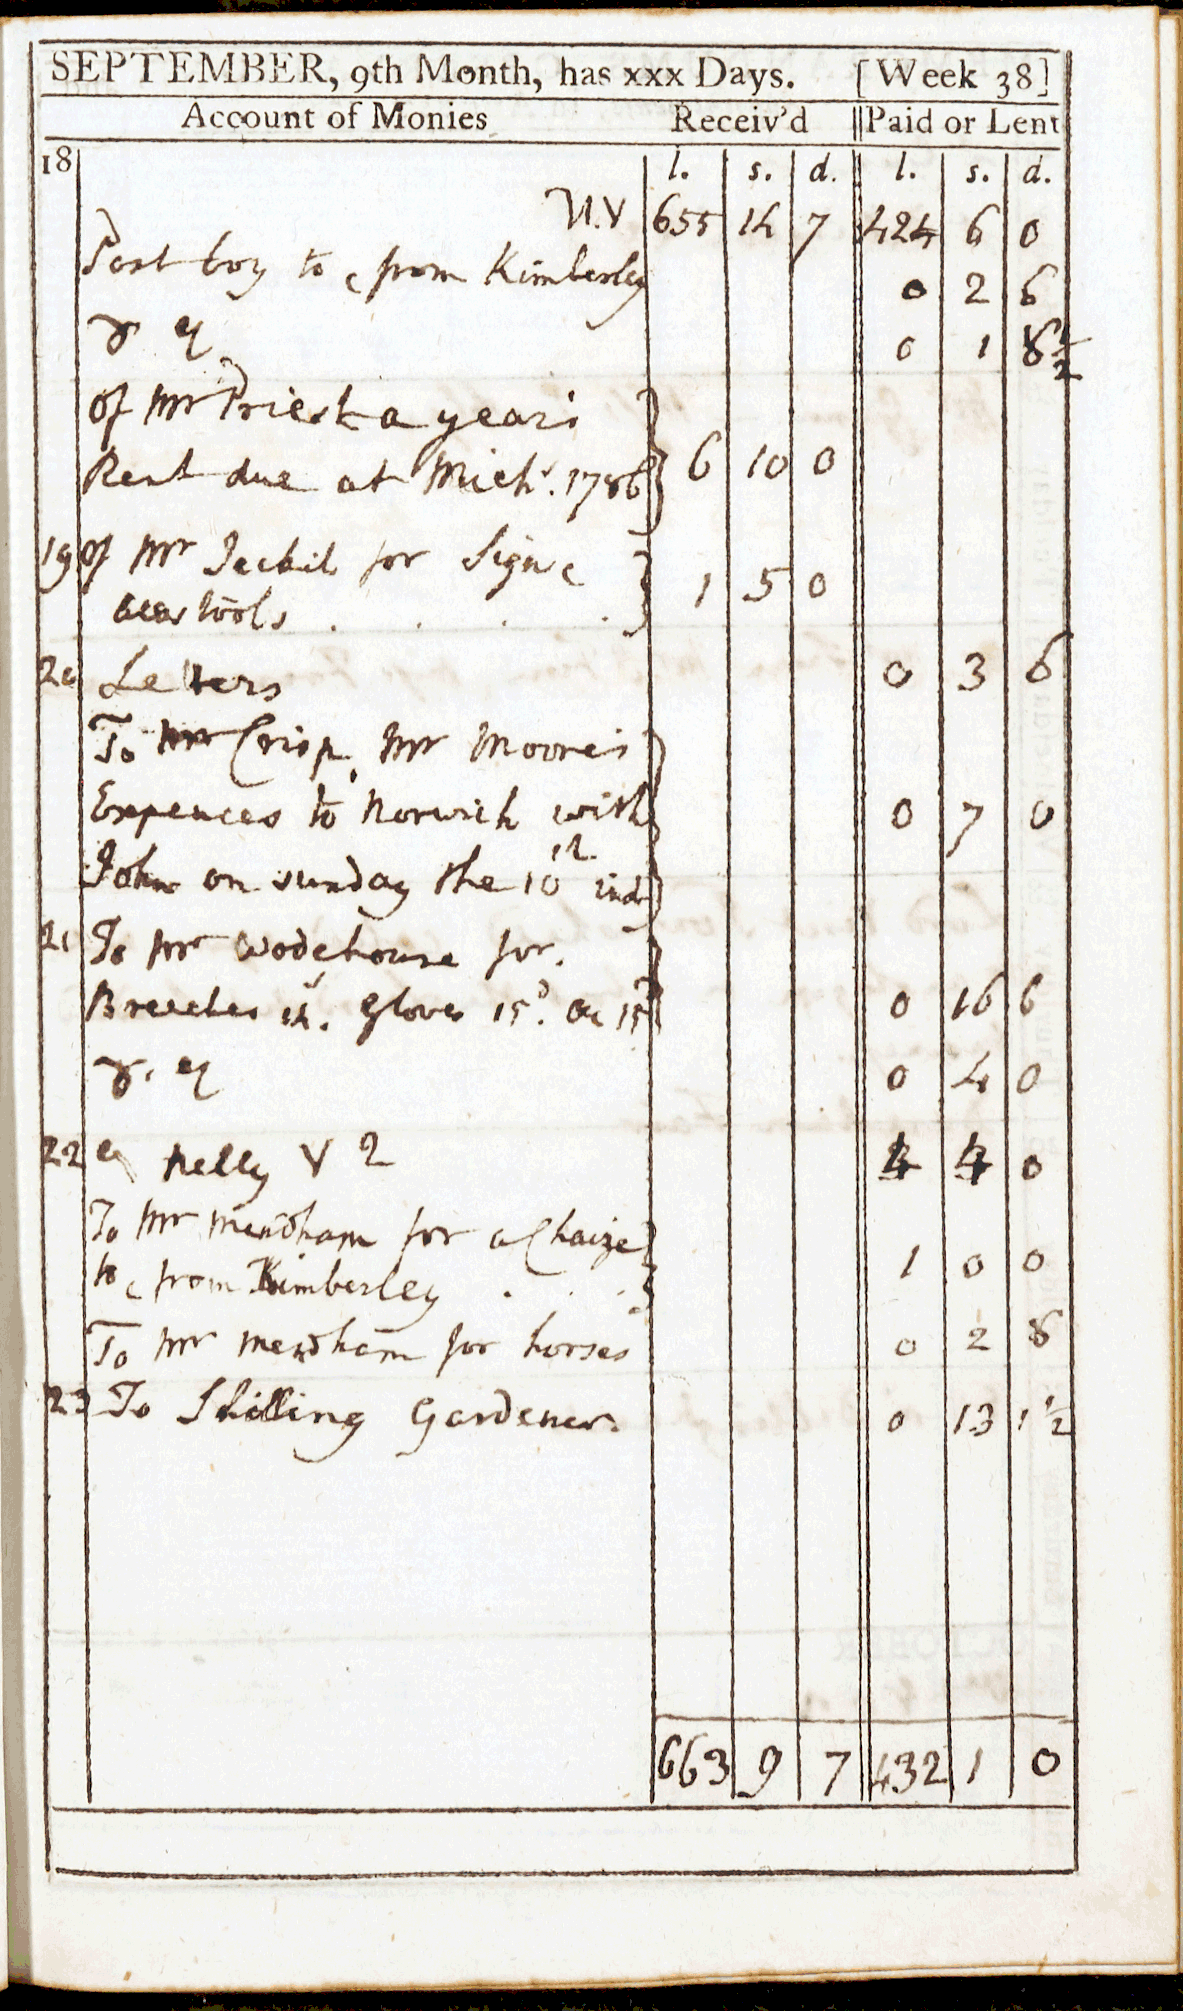 SEPTEMBER, 9th Month, has xxx Days. [Week 38]
Account of Monies Receiv'd Paid or Lent
18 l. s. d. l. s. d.
655 14 7 424 6 0
Post boy to & from Kimberley 0 2 6
0 1 8½
of Mr Priest a years
Rent due at Mich. 1786 6 10 0
19 of Mr Jeckil for Signe
tools . . . 1 5 0
20 Letters 0 3 6
To Mr Crisp, Mr Moore's
Expences to Norwich with 0 7 0
John on sunday the 10th
21 To Mr Wodehouse for.
Breeches Gloves 15d. 0 16 6
0 4 0
22 Nelly V 2 4 4 0
To Mr Mendham for a Chaize
to & from Kimberley . . . 1 0 0
To Mr Mendham for horses 0 2 8
23 To Shilling Gardener. 0 13 1½
663 9 7 432 1 0